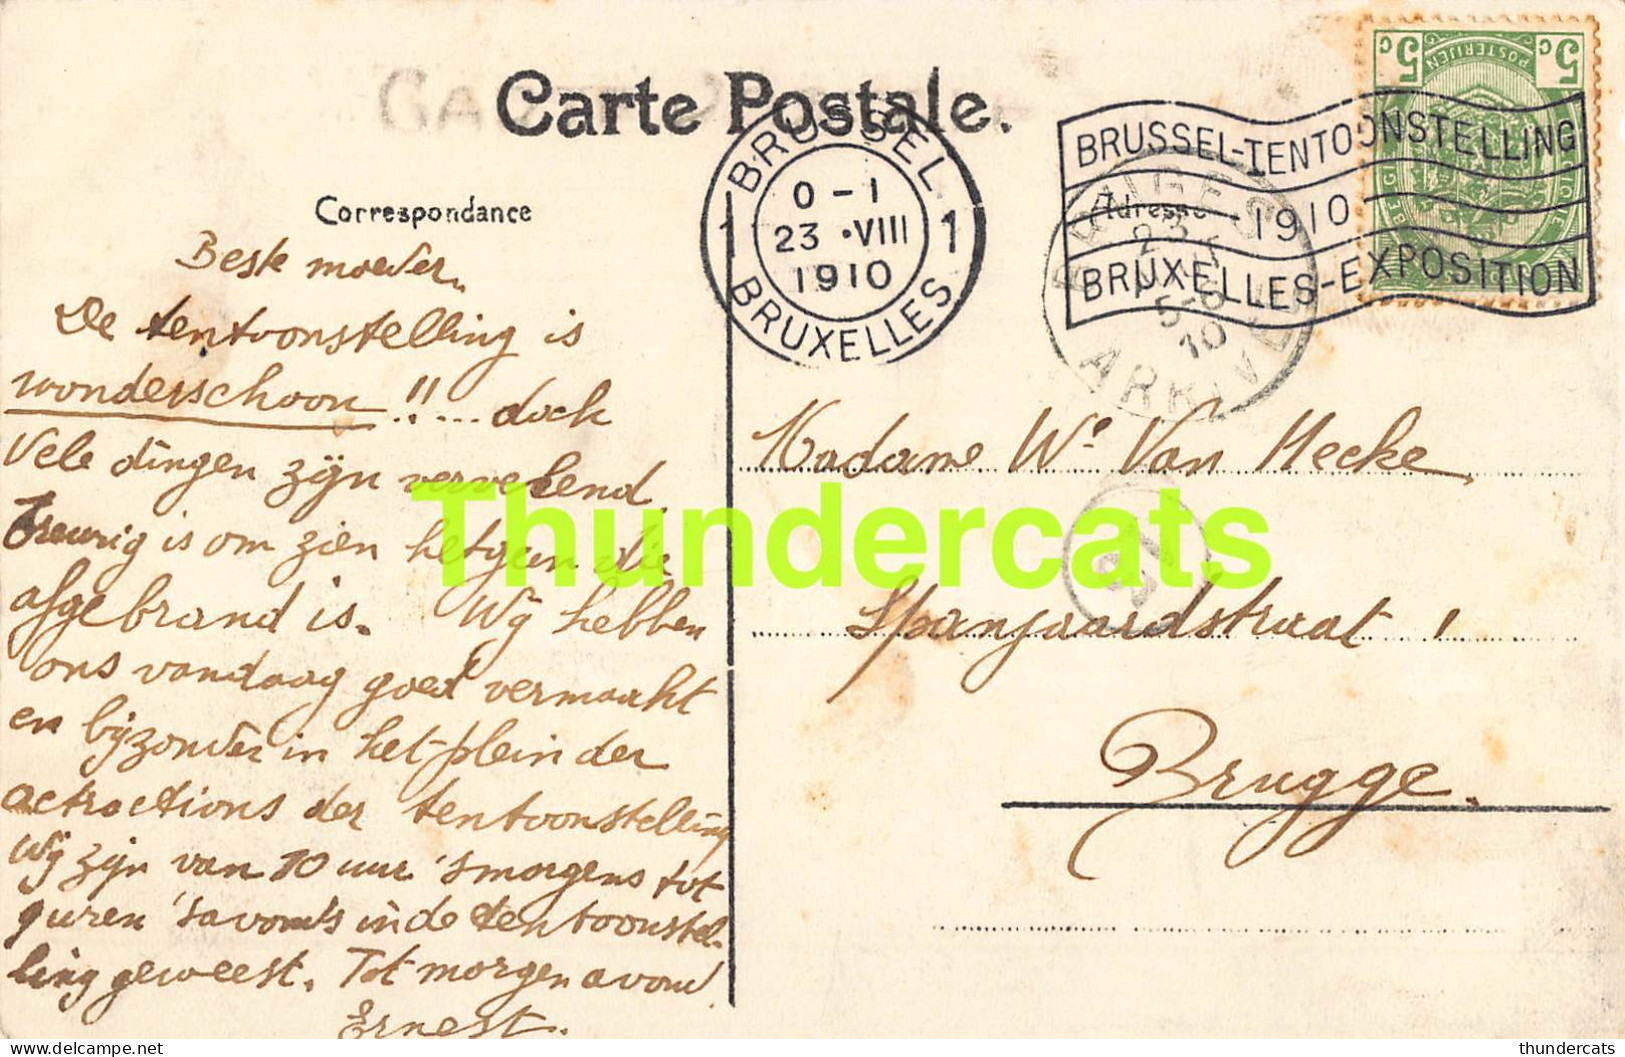 Carte Postale.
Correspondance
Beste moeder.
De tentoonstelling is
wonderschoon!!... doch
Vele dingen zijn vervelend.
Treurig is om zien hetgeen die
afgebrand is. Wij hebben
ons vandaag goed vermaakt
en bijzonder in het plein der
actractions der tentoonstelling
Wij zijn van 10 uur 'smorgens tot
9 uren 'savonds in de tentoonstel-
ling geweest. Tot morgen avond.
Ernest.
BRUSSEL
1 1
0-1
23 •VIII
1910
BRUXELLES
BRUSSEL-TENTOONSTELLING
1910
BRUXELLES-EXPOSITION
5c 5c
POSTERIJEN
Adresse
BRUGES
23
5-6
10
ARRIVÉE
Madame We Van Hecke
Spanjaardstraat 1
Brugge.
Thundercats
thundercats
thundercats